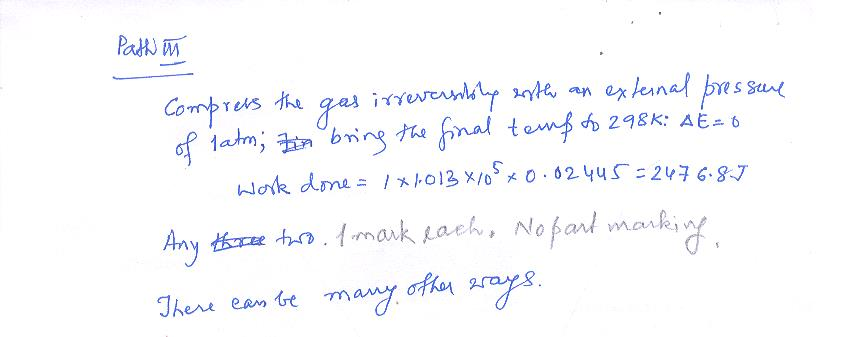 Path III
Compress the gas irreversibly with an external pressure
of 1atm; bring the final temp to 298K: ΔE=0
Work done = 1 x 1.013 x 10⁵ x 0.02445 = 2476.8J
Any three two. 1 mark each. No part marking.
There can be many other ways.